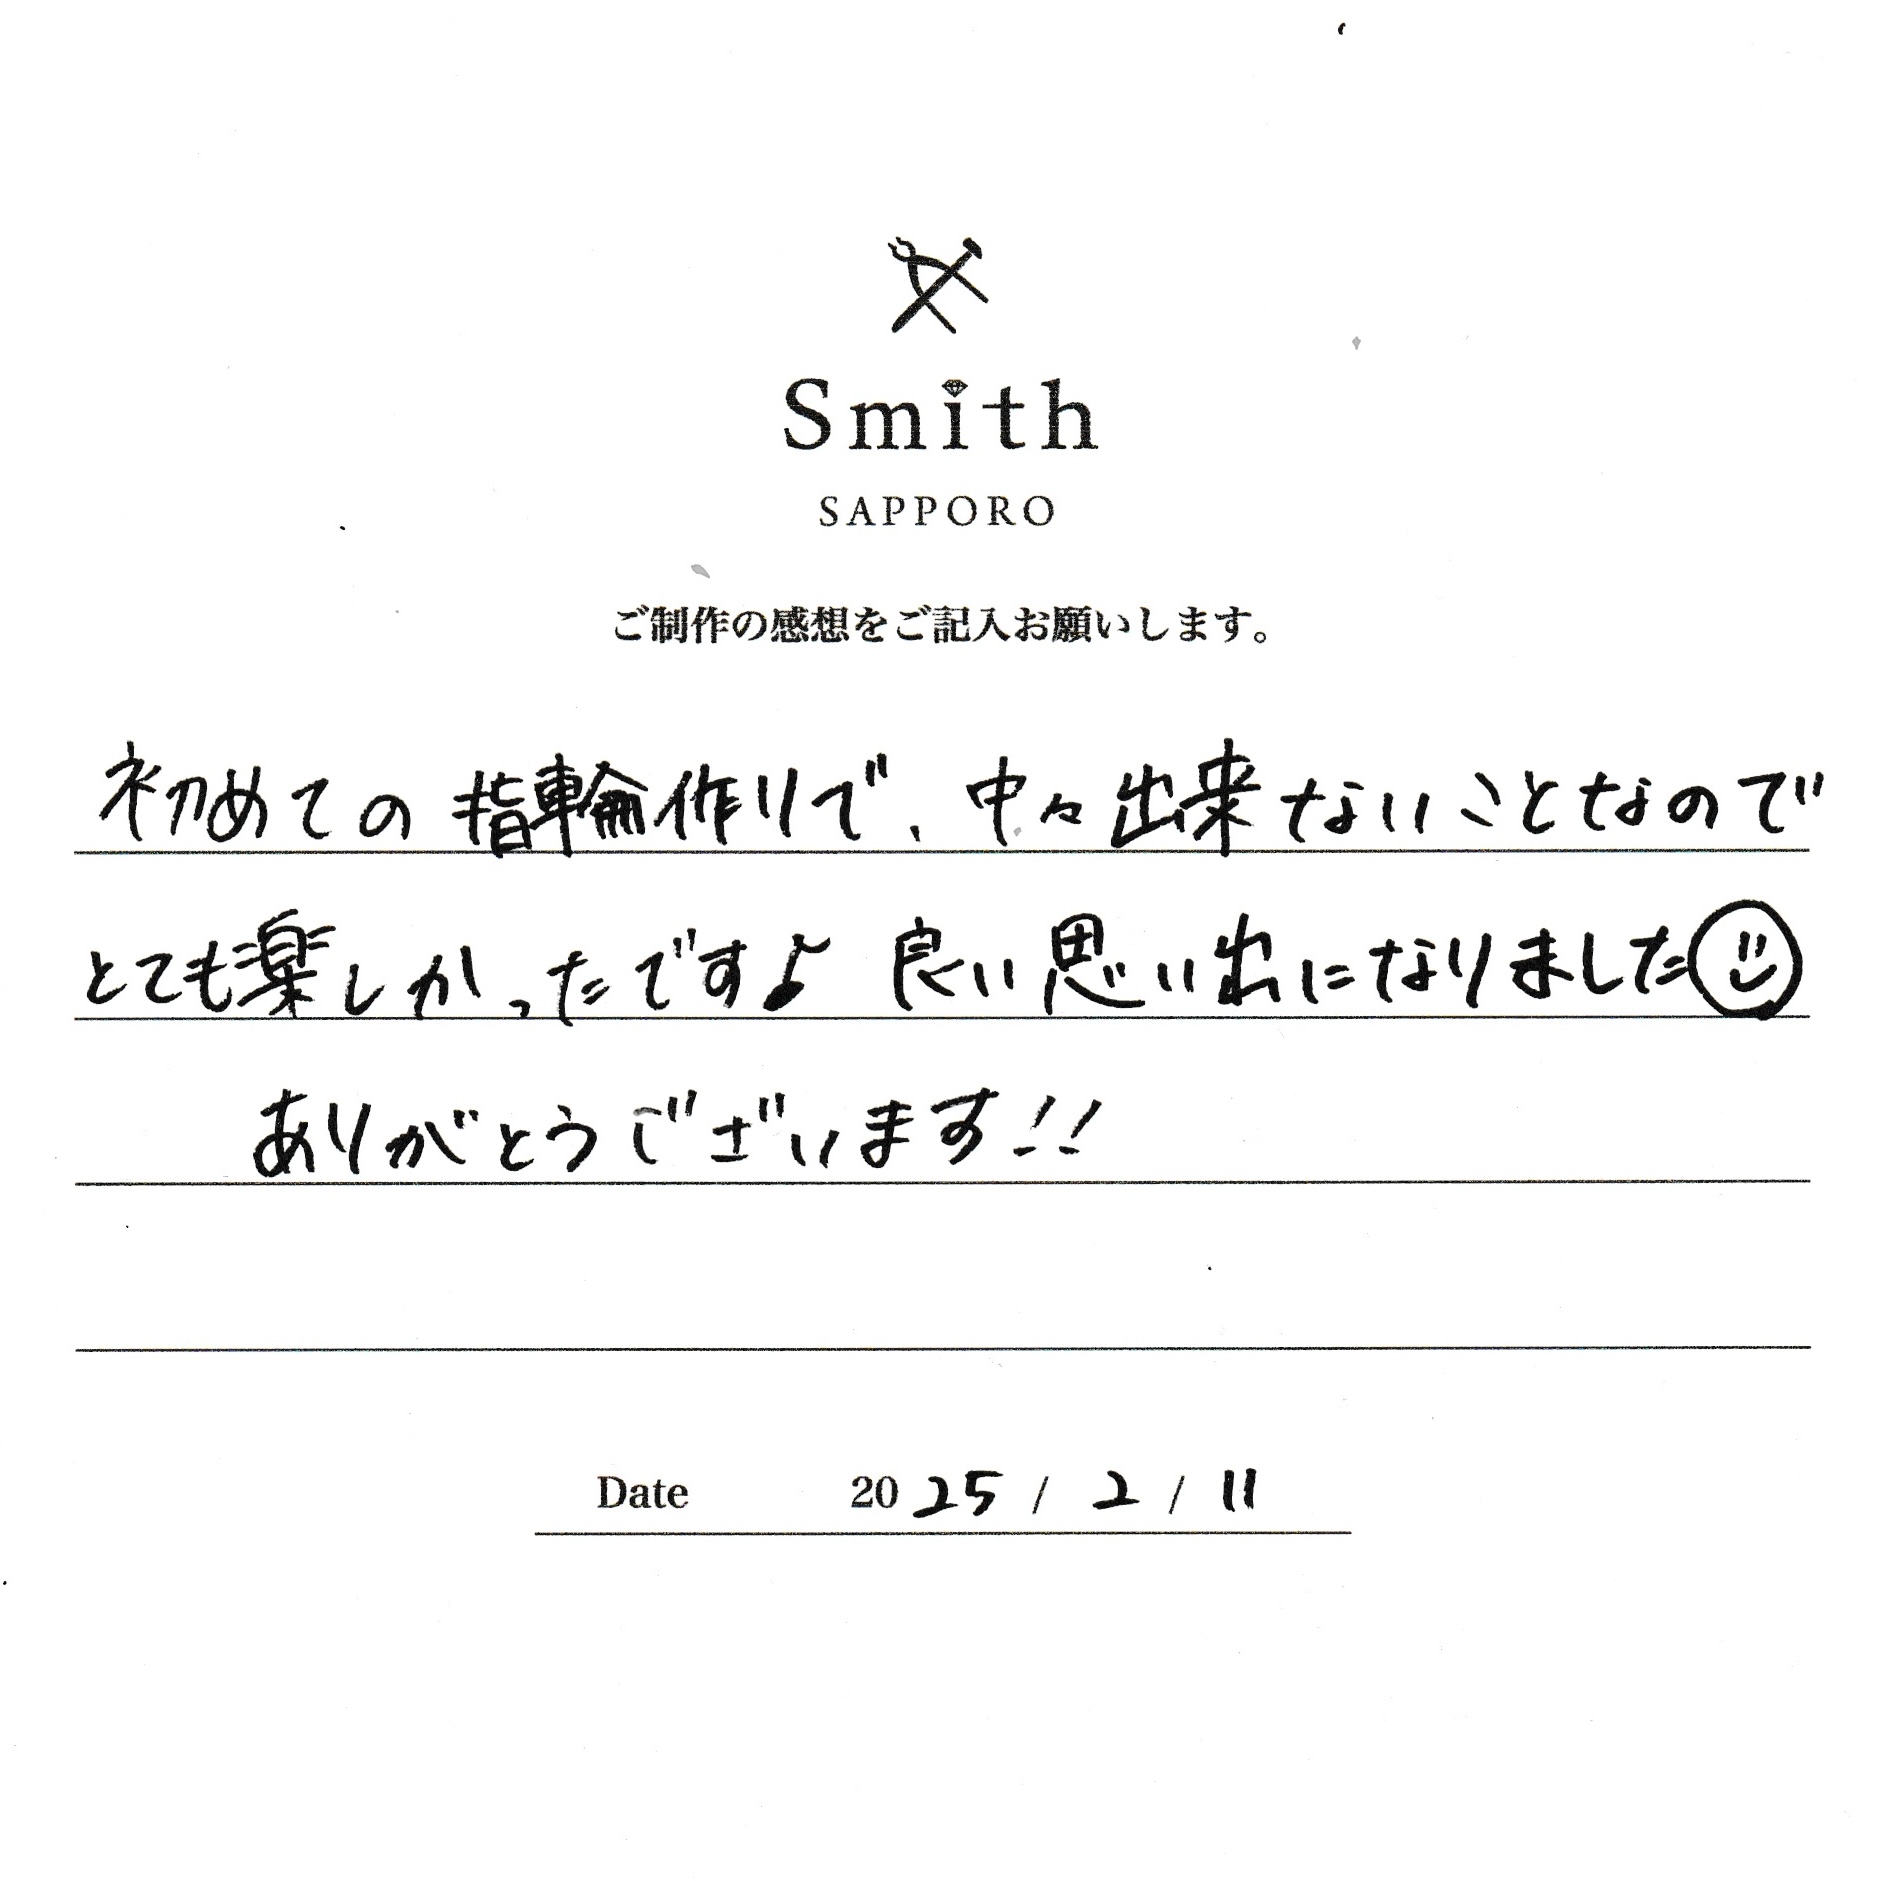 Smith
SAPPORO
ご制作の感想をご記入お願いします。
初めての指輪作りで、中々出来ないことなので
とても楽しかったです♪ 良い思い出になりました☺
ありがとうございます!!
Date 2025 / 2 / 11